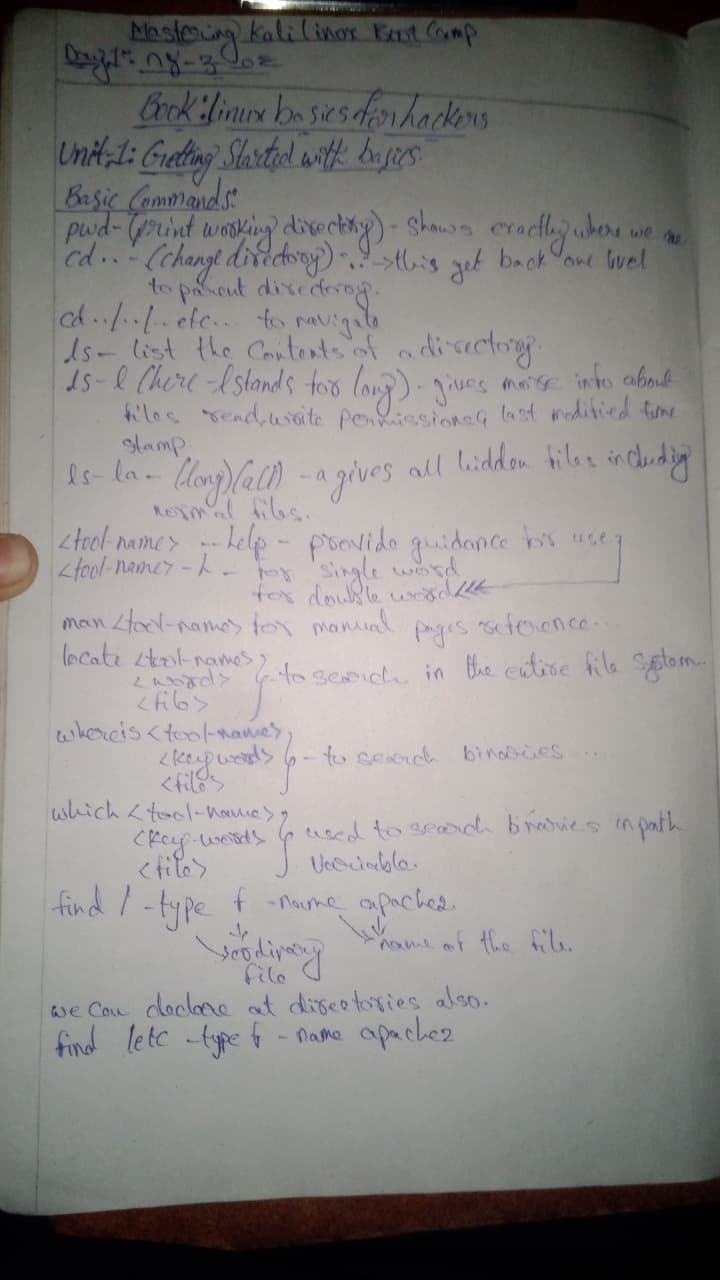 Mastering Kali Linux Boot Camp
Day-1:
Book: linux basics for hackers
Unit-1: Getting Started with basics.
Basic Commands:
pwd- (print working directory) - Shows exactly where we are
cd.. - (change directory) - ..→this get back one level
to parent directory.
cd ../../.. etc... to navigate
ls - list the Contents of a directory.
ls -l (here -l stands for long) - gives more info about
files read,write permissions, last modified time
stamp.
ls -la - (long)(all) -a gives all hidden files including
normal files.
<tool-name> --help - provide guidance for use
<tool-name> -h - for single word
for double word <<<
man <tool-name> for manual pages reference...
locate <tool-name>
<word> } - to search in the entire file System
<file>
whereis <tool-name>
<keyword> } - to search binaries ...
<file>
which <tool-name>
<key-word> } used to search binaries in path
<file> Variable.
find / -type f -name apache2.
ordinary name of the file.
file
we can declare at directories also.
find /etc -type f -name apache2